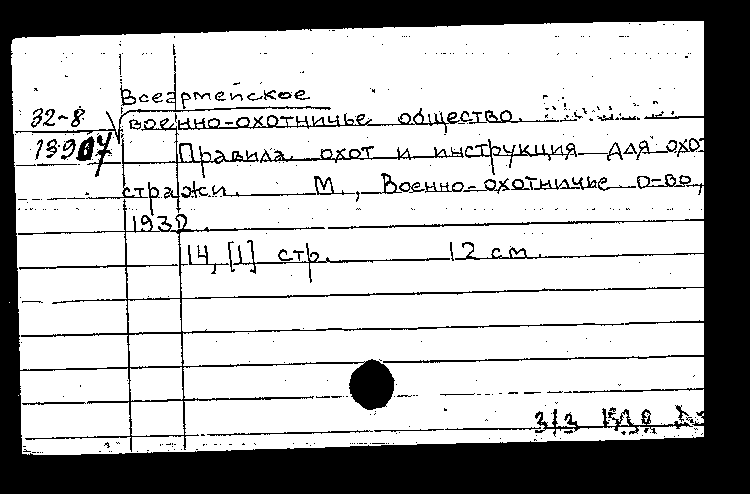 Всеармейское
32-8 военно-охотничье общество.
13907 Правила охот и инструкция для охот
стражи. М., Военно-охотничье о-во,
1932.
14, [1] стр. 12 см.